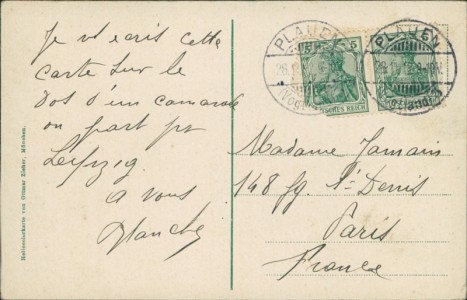 Je vs ecris cette
carte sur le
dos d'un camarade
on part pr
Leipzig.
a vous
Blanche
Madame Jamain
148 fg. St-Denis
Paris
France
PLAUEN
(Vogtl
5
5
DEUTSCHES REICH
PLAUEN
Kollektienkarte von Ottmar Zieher, München.